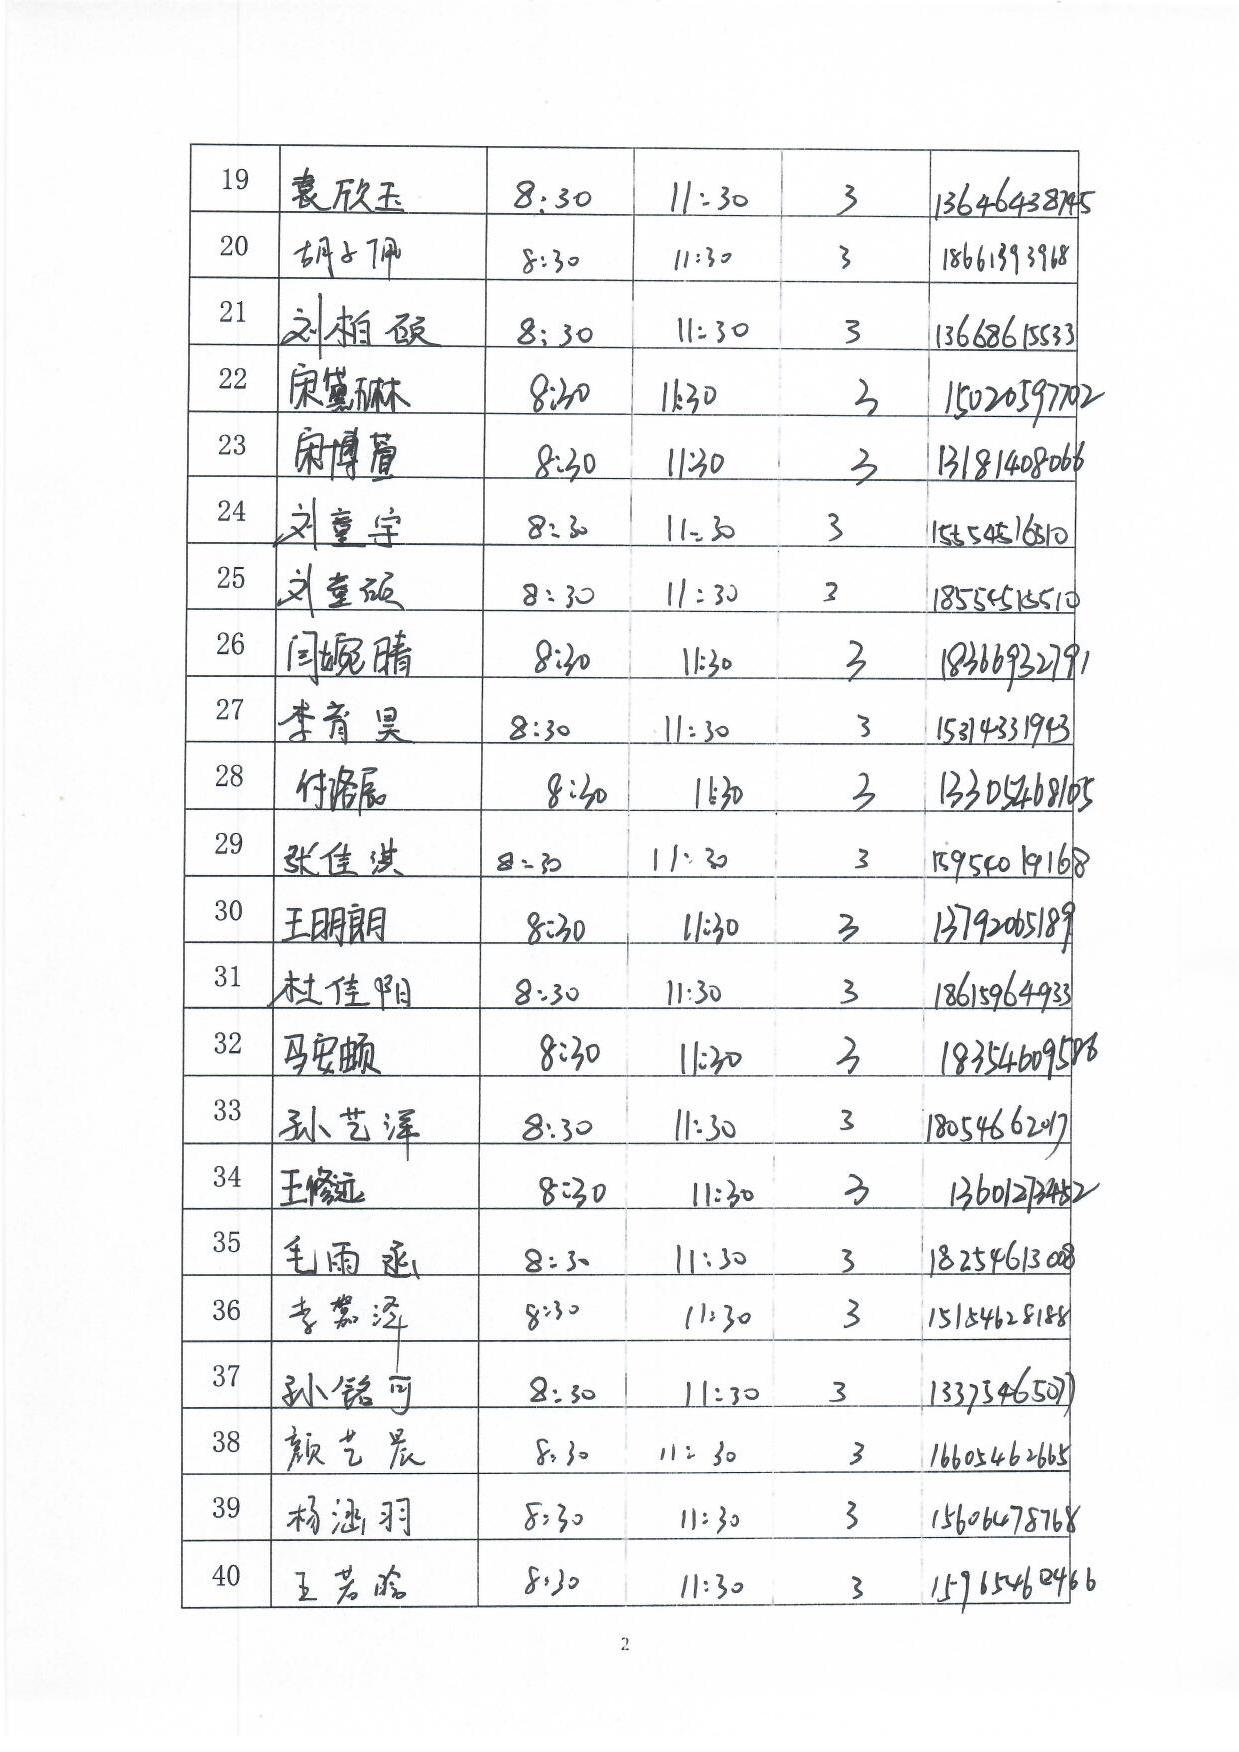 19 袁欣玉 8:30 11:30 3 13646438745
20 胡子佩 8:30 11:30 3 18661393968
21 刘柏硕 8:30 11:30 3 13668615533
22 宋黛琳 8:30 11:30 3 15020597702
23 宋博萱 8:30 11:30 3 13181408066
24 刘童宇 8:30 11:30 3 15554516510
25 刘童硕 8:30 11:30 3 18554515510
26 闫婉晴 8:30 11:30 3 18366932791
27 李育昊 8:30 11:30 3 15314331943
28 付洛辰 8:30 11:30 3 13305468105
29 张佳淇 8:30 11:30 3 15954019168
30 王明朗 8:30 11:30 3 13792065189
31 杜佳阳 8:30 11:30 3 18615964933
32 马安颐 8:30 11:30 3 18354609586
33 孙艺洋 8:30 11:30 3 18054662017
34 王修远 8:30 11:30 3 13601273452
35 毛雨丞 8:30 11:30 3 18254613008
36 李嘉泽 8:30 11:30 3 15154628188
37 孙铭可 8:30 11:30 3 13375465077
38 颜艺晨 8:30 11:30 3 16605462665
39 杨涵羽 8:30 11:30 3 15606478768
40 王若晗 8:30 11:30 3
2